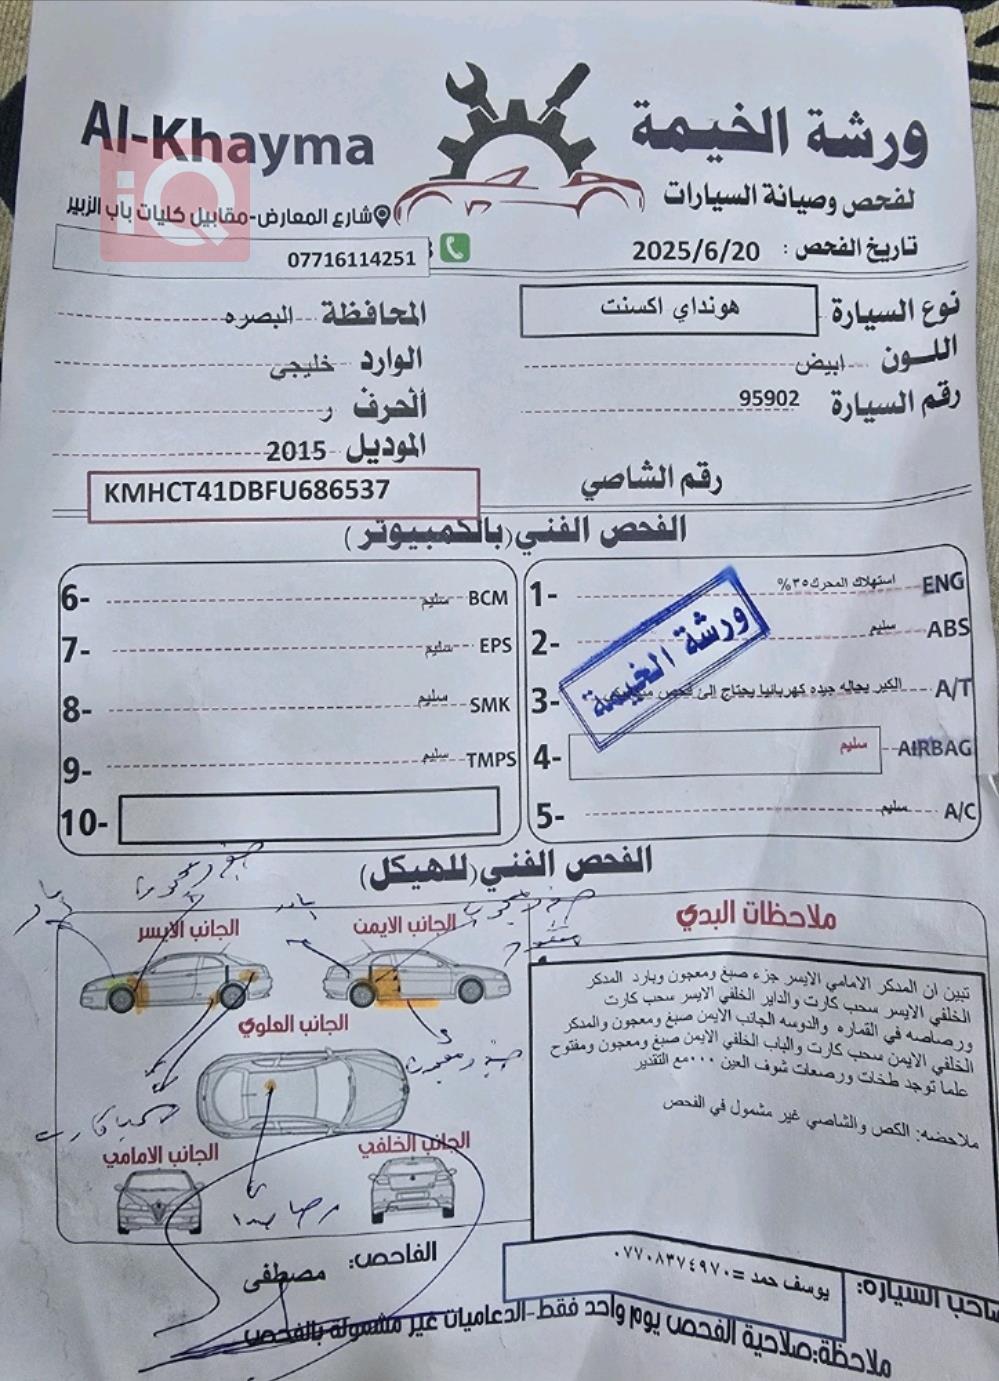 ورشة الخيمة
Al-Khayma
iQ
لفحص وصيانة السيارات
شارع المعارض-مقابيل كليات باب الزبير
تاريخ الفحص : 2025/6/20
07716114251
نوع السيارة هونداي اكسنت
المحافظة البصره
اللون ابيض
الوارد خليجي
رقم السيارة 95902
الحرف ر
الموديل 2015
رقم الشاصي KMHCT41DBFU686537
الفحص الفني (بالكمبيوتر)
1- ENG استهلاك المحرك ٣٥%
2- ABS سليم
3- A/T الكير بحاله جيده كهربائيا يحتاج الى فحص
4- AIRBAG سليم
5- A/C سليم
6- BCM سليم
7- EPS سليم
8- SMK سليم
9- TMPS سليم
10-
ورشة الخيمة
الفحص الفني (للهيكل)
ملاحظات البدي
تبين ان المدكر الامامي الايسر جزء صبغ ومعجون وبارد المدكر
الخلفي الايسر سحب كارت والداير الخلفي الايسر سحب كارت
ورصاصه في القماره والدوسه الجانب الايمن صبغ ومعجون والمدكر
الخلفي الايمن سحب كارت والباب الخلفي الايمن صبغ ومعجون ومفتوح
علما توجد طخات ورصعات شوف العين ٠٠٠مع التقدير
ملاحضه: الكص والشاصي غير مشمول في الفحص
الجانب الايسر
الجانب الايمن
صبغ ومعجون
بارد
صبغ ومعجون
الجانب العلوي
صبغ ومعجون
سحب كارت
الجانب الامامي
الجانب الخلفي
الفاحص: مصطفى
صاحب السياره: يوسف حمد =٠٧٧٠٨٣٧٤٩٧٠
ملاحظة:صلاحية الفحص يوم واحد فقط-الدعاميات غير مشمولة بالفحص